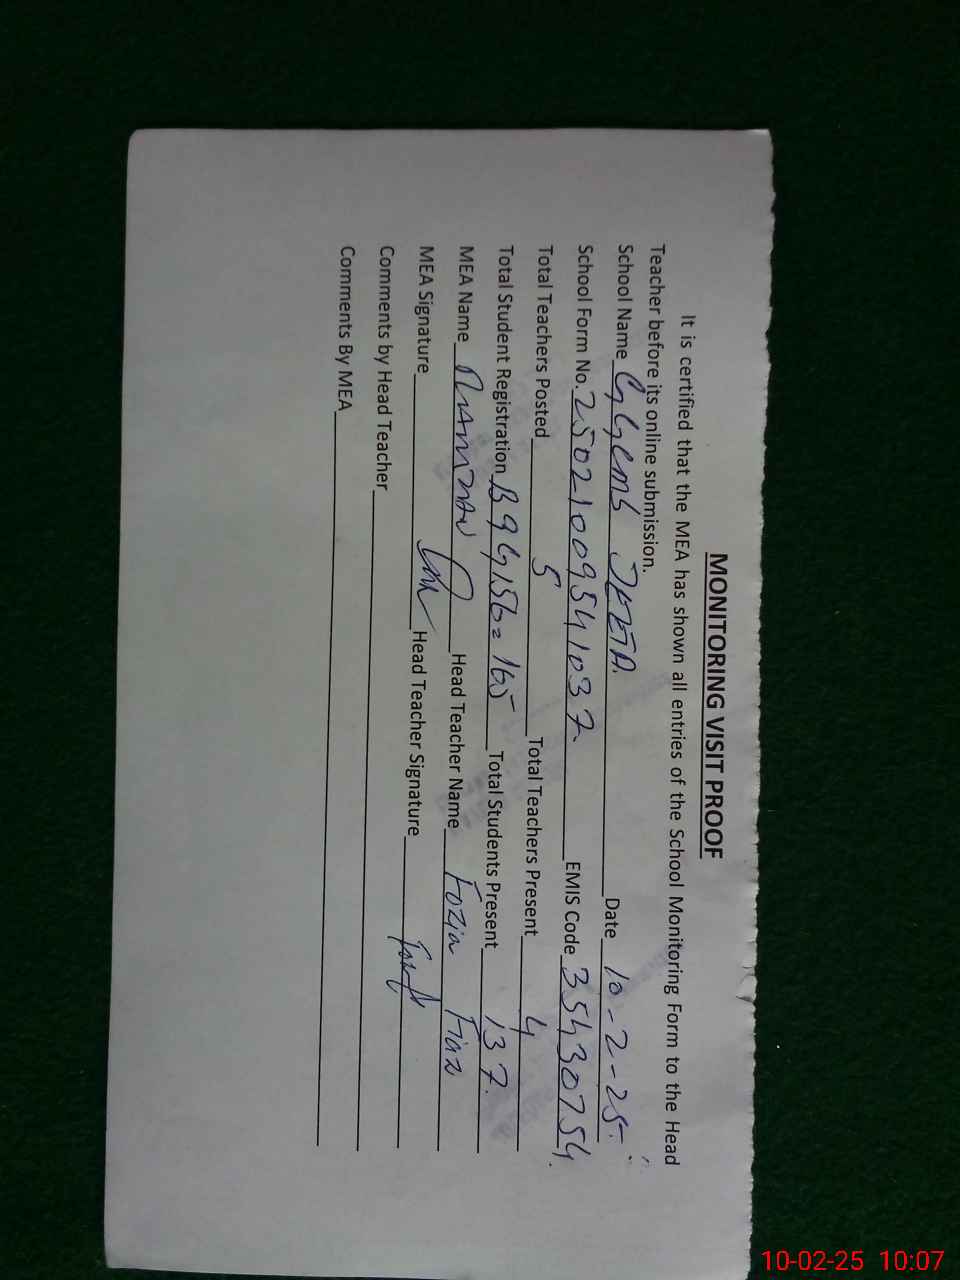 MONITORING VISIT PROOF
It is certified that the MEA has shown all entries of the School Monitoring Form to the Head
Teacher before its online submission.
School Name Date 10-2-25.
School Form No. 25021009541037. EMIS Code 35430754.
Total Teachers Posted 5 Total Teachers Present 4
Total Student Registration B9G156=165 Total Students Present 137.
MEA Name Head Teacher Name Fozia
MEA Signature Head Teacher Signature
Comments by Head Teacher
Comments By MEA
10-02-25 10:07